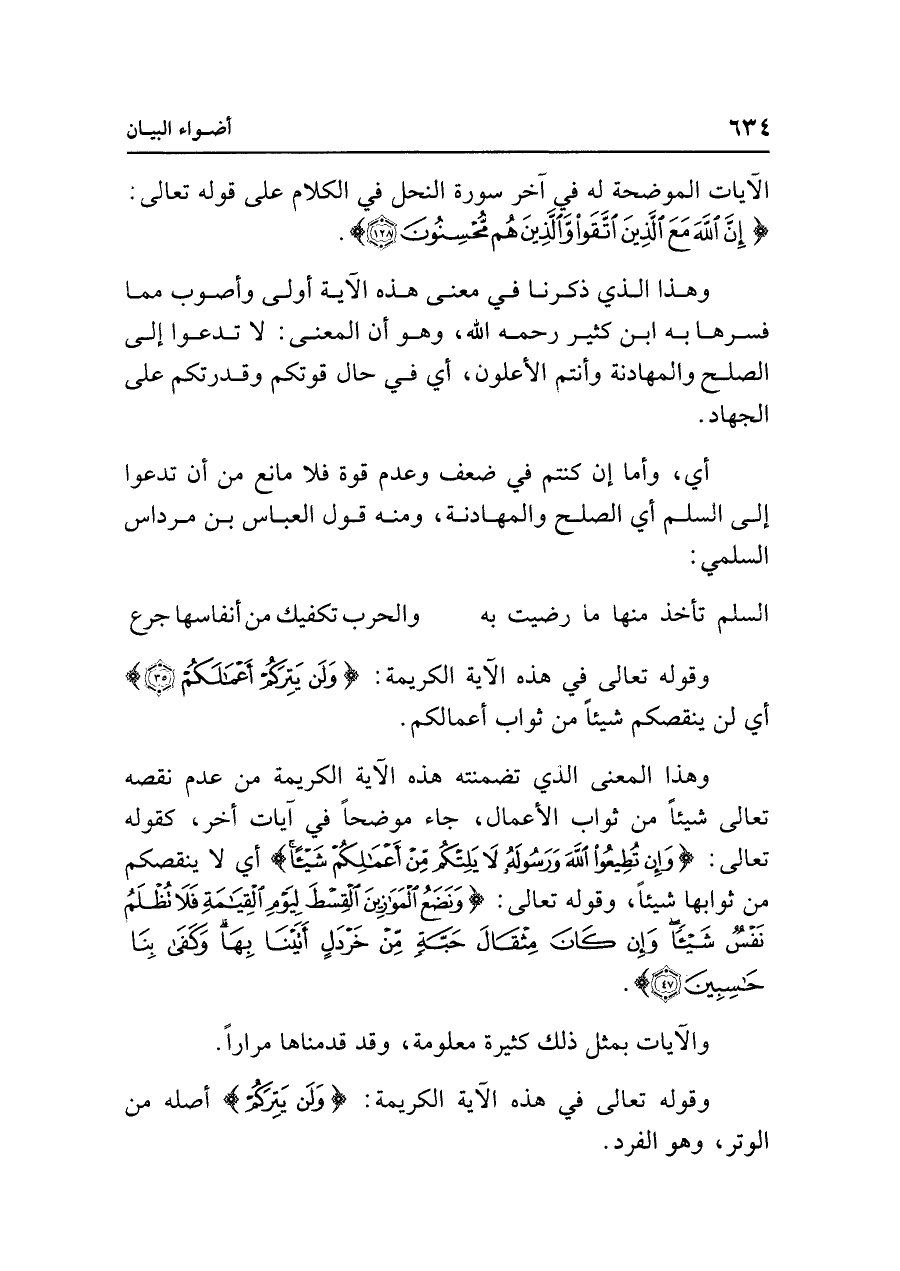 ٦٣٤ أضـواء البيـان
الآيات الموضحة له في آخر سورة النحل في الكلام على قوله تعالى:
﴿ إِنَّ ٱللَّهَ مَعَ ٱلَّذِينَ ٱتَّقَوا۟ وَّٱلَّذِينَ هُم مُّحْسِنُونَ ١٢٨ ﴾.
وهـذا الـذي ذكـرنـا فـي معنـى هـذه الآيـة أولـى وأصـوب ممـا
فسـرهـا بـه ابـن كثيـر رحمـه الله، وهـو أن المعنـى: لا تـدعـوا إلـى
الصلـح والمهادنة وأنتم الأعلون، أي فـي حال قوتكم وقـدرتكم على
الجهاد.
أي، وأما إن كنتم في ضعف وعدم قوة فلا مانع من أن تدعوا
إلـى السلـم أي الصلـح والمهـادنـة، ومنـه قـول العبـاس بـن مـرداس
السلمي:
السلم تأخذ منها ما رضيت به والحرب تكفيك من أنفاسها جرع
وقوله تعالى في هذه الآية الكريمة: ﴿ وَلَن يَتِرَكُمْ أَعْمَـٰلَكُمْ ٣٥ ﴾
أي لن ينقصكم شيئاً من ثواب أعمالكم.
وهذا المعنى الذي تضمنته هذه الآية الكريمة من عدم نقصه
تعالى شيئاً من ثواب الأعمال، جاء موضحاً في آيات أخر، كقوله
تعالى: ﴿ وَإِن تُطِيعُوا۟ ٱللَّهَ وَرَسُولَهُۥ لَا يَلِتْكُم مِّنْ أَعْمَـٰلِكُمْ شَيْـًٔاۚ ﴾ أي لا ينقصكم
من ثوابها شيئاً، وقوله تعالى: ﴿ وَنَضَعُ ٱلْمَوَٰزِينَ ٱلْقِسْطَ لِيَوْمِ ٱلْقِيَـٰمَةِ فَلَا تُظْلَمُ
نَفْسٌ شَيْـًٔاۖ وَإِن كَانَ مِثْقَالَ حَبَّةٍ مِّنْ خَرْدَلٍ أَتَيْنَا بِهَاۗ وَكَفَىٰ بِنَا
حَـٰسِبِينَ ٤٧ ﴾.
والآيات بمثل ذلك كثيرة معلومة، وقد قدمناها مراراً.
وقوله تعالى في هذه الآية الكريمة: ﴿ وَلَن يَتِرَكُمْ ﴾ أصله من
الوتر، وهو الفرد.